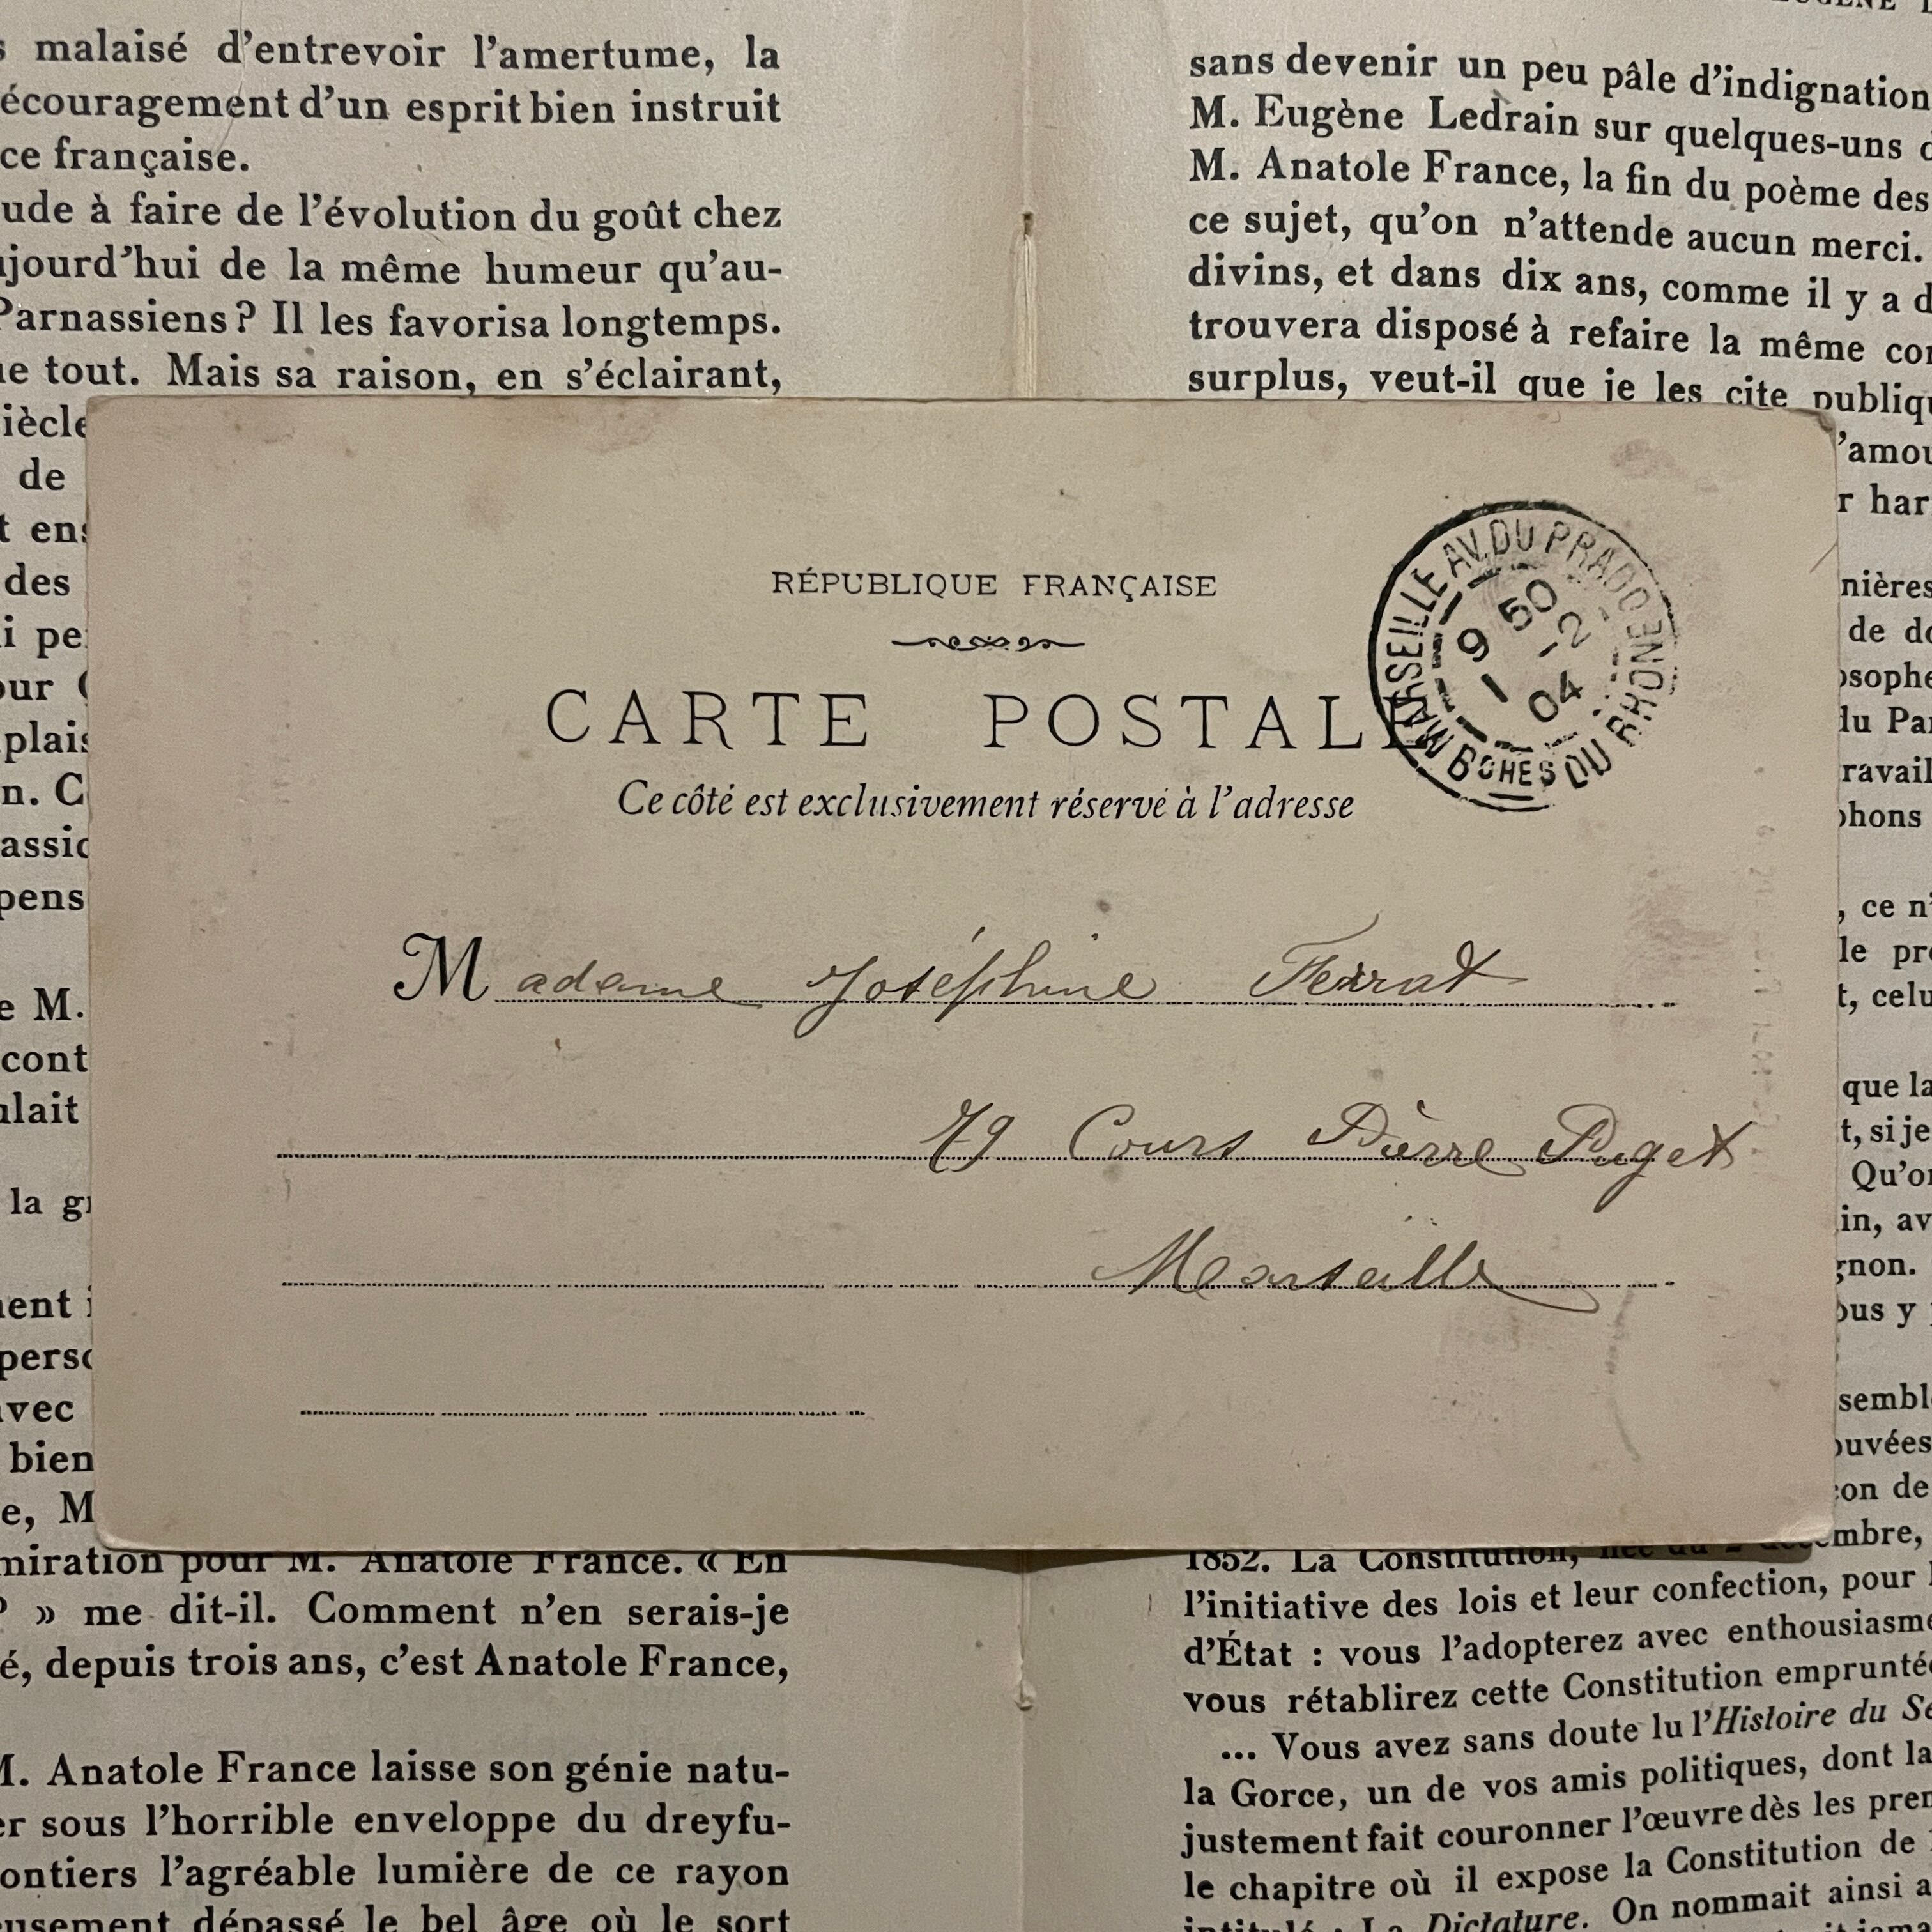 malaisé d'entrevoir l'amertume, la
écouragement d'un esprit bien instruit
ce française.
ude à faire de l'évolution du goût chez
ujourd'hui de la même humeur qu'au-
Parnassiens ? Il les favorisa longtemps.
ue tout. Mais sa raison, en s'éclairant,
iècle
de
t ens
des
i pe
our
plais
n. C
assic
pens
e M.
cont
ulait
la gr
ent i
perso
avec
bien
e, M
miration pour M. Anatole France. « En
? » me dit-il. Comment n'en serais-je
é, depuis trois ans, c'est Anatole France,
M. Anatole France laisse son génie natu-
er sous l'horrible enveloppe du dreyfu-
ontiers l'agréable lumière de ce rayon
eusement dépassé le bel âge où le sort
sans devenir un peu pâle d'indignation
M. Eugène Ledrain sur quelques-uns d
M. Anatole France, la fin du poème des
ce sujet, qu'on n'attende aucun merci.
divins, et dans dix ans, comme il y a d
trouvera disposé à refaire la même con
surplus, veut-il que je les cite publiqu
'amou
r har
nières
de do
osophe
du Par
ravail
phons
, ce n'
le pre
t, celu
que la
t, si je
Qu'on
in, av
gnon.
ous y
sembl
ouvées
çon de
1852. La Constitution, née du 2 décembre,
l'initiative des lois et leur confection, pour l
d'État : vous l'adopterez avec enthousiasme
vous rétablirez cette Constitution emprunté
... Vous avez sans doute lu l'Histoire du Se
la Gorce, un de vos amis politiques, dont la
justement fait couronner l'œuvre dès les prem
le chapitre où il expose la Constitution de
intitulé : La Dictature. On nommait ainsi a
RÉPUBLIQUE FRANÇAISE
CARTE POSTALE
Ce côté est exclusivement réservé à l'adresse
MARSEILLE AV. DU PRADO
9 50
1 -2
04
BCHES DU RHONE
Madame Joséphine Ferrat
79 Cours Pierre Puget
Marseille